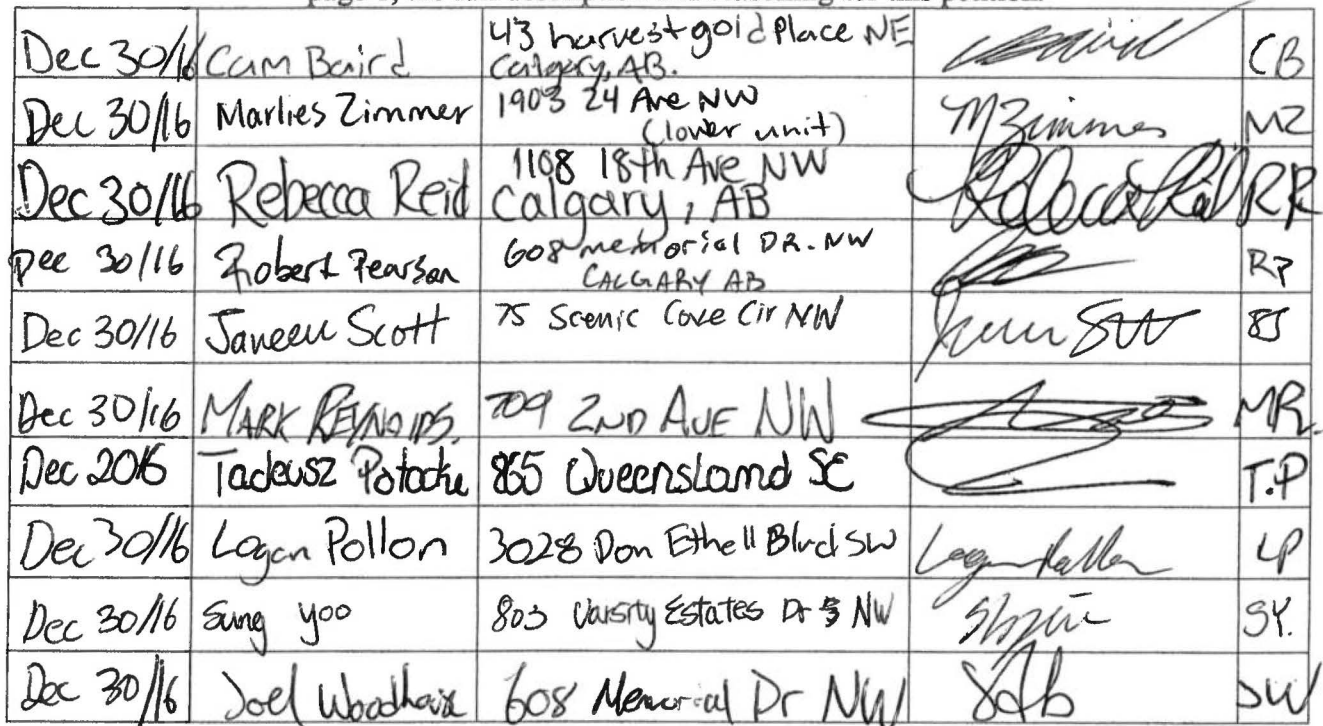 Dec 30/16 Cam Baird 43 harvest gold Place NE CB
Calgary, AB.
Dec 30/16 Marlies Zimmer 1903 24 Ave NW MZimmer MZ
(lower unit)
Dec 30/16 Rebecca Reid 1108 18th Ave NW Rebecca Reid RR
Calgary, AB
Dec 30/16 Robert Pearson 608 memorial DR. NW RP
CALGARY AB
Dec 30/16 Janeen Scott 75 Scenic Cove Cir NW JS
Dec 30/16 MARK REYNOLDS. 709 2ND AVE NW MR.
Dec 2016 Tadeusz 865 Queensland SE T.P
Dec 30/16 Logan Pollon 3028 Don Ethell Blvd SW Logan Pollon LP
Dec 30/16 Sung yoo 803 Varsity Estates Dr NW SY.
Dec 30/16 Joel Woodhouse 608 Memorial Dr NW JW